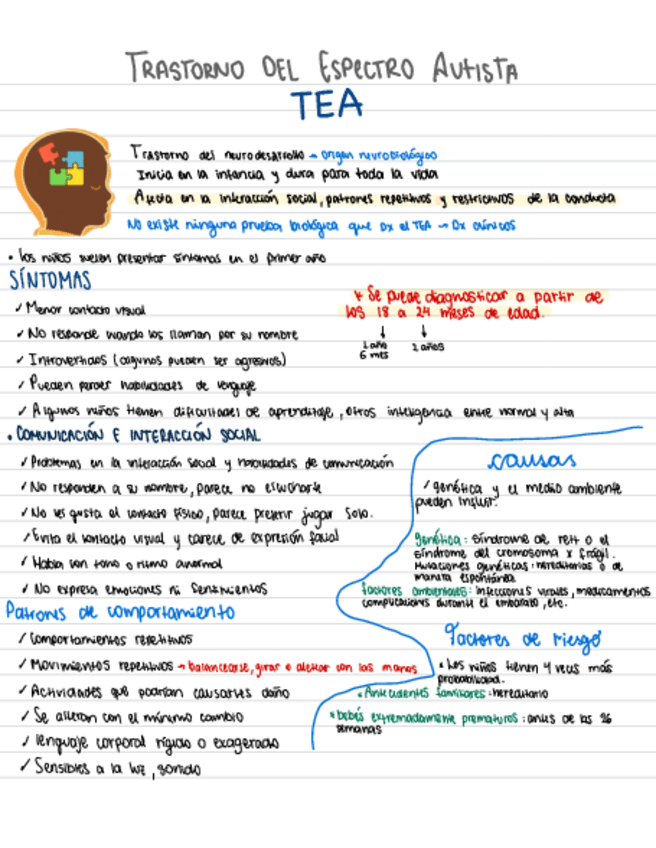 TRASTORNO DEL ESPECTRO AUTISTA
TEA
Trastorno del neurodesarrollo → origen neurobiológico
Inicia en la infancia y dura para toda la vida
Afecta en la interacción social, patrones repetitivos y restrictivos de la conducta
No existe ninguna prueba biológica que Dx el TEA → Dx clínicos
• Los niños suelen presentar síntomas en el primer año
SÍNTOMAS
✓ Menor contacto visual
✓ No responde cuando los llaman por su nombre
✓ Introvertidos (algunos pueden ser agresivos)
✓ Pueden perder habilidades de lenguaje
✓ Algunos niños tienen dificultades de aprendizaje, otros inteligencia entre normal y alta
* Se puede diagnosticar a partir de
los 18 a 24 meses de edad.
↓ ↓
1 año 2 años
6 mes
• COMUNICACIÓN E INTERACCIÓN SOCIAL
✓ Problemas en la interacción social y habilidades de comunicación
✓ No responden a su nombre, parece no escucharte
✓ No les gusta el contacto físico, parece preferir jugar solo.
✓ Evita el contacto visual y carece de expresión facial
✓ Habla con tono o ritmo anormal
✓ No expresa emociones ni sentimientos
Patrones de comportamiento
✓ Comportamientos repetitivos
✓ Movimientos repetitivos → balancearse, girar o aletear con las manos
✓ Actividades que podrían causarles daño
✓ Se alteran con el mínimo cambio
✓ lenguaje corporal rígido o exagerado
✓ Sensibles a la luz, sonido
causas
✓ genética y el medio ambiente
pueden influir.
genética: síndrome de rett o el
síndrome del cromosoma x frágil.
Mutaciones genéticas: hereditarias o de
manera espontánea
factores ambientales: infecciones virales, medicamentos
complicaciones durante el embarazo, etc.
Factores de riesgo
• Los niños tienen 4 veces más
probabilidad.
• Antecedentes familiares: hereditario
• bebés extremadamente prematuros: antes de las 26
semanas